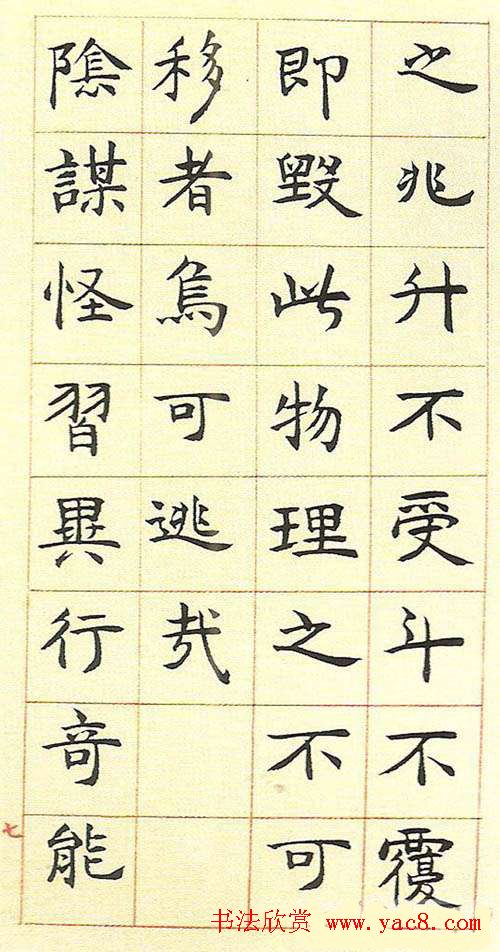 之兆升不受斗不覆
即毀此物理之不可
移者烏可逃哉
陰謀怪習異行奇能
七
书法欣赏 www.yac8.com